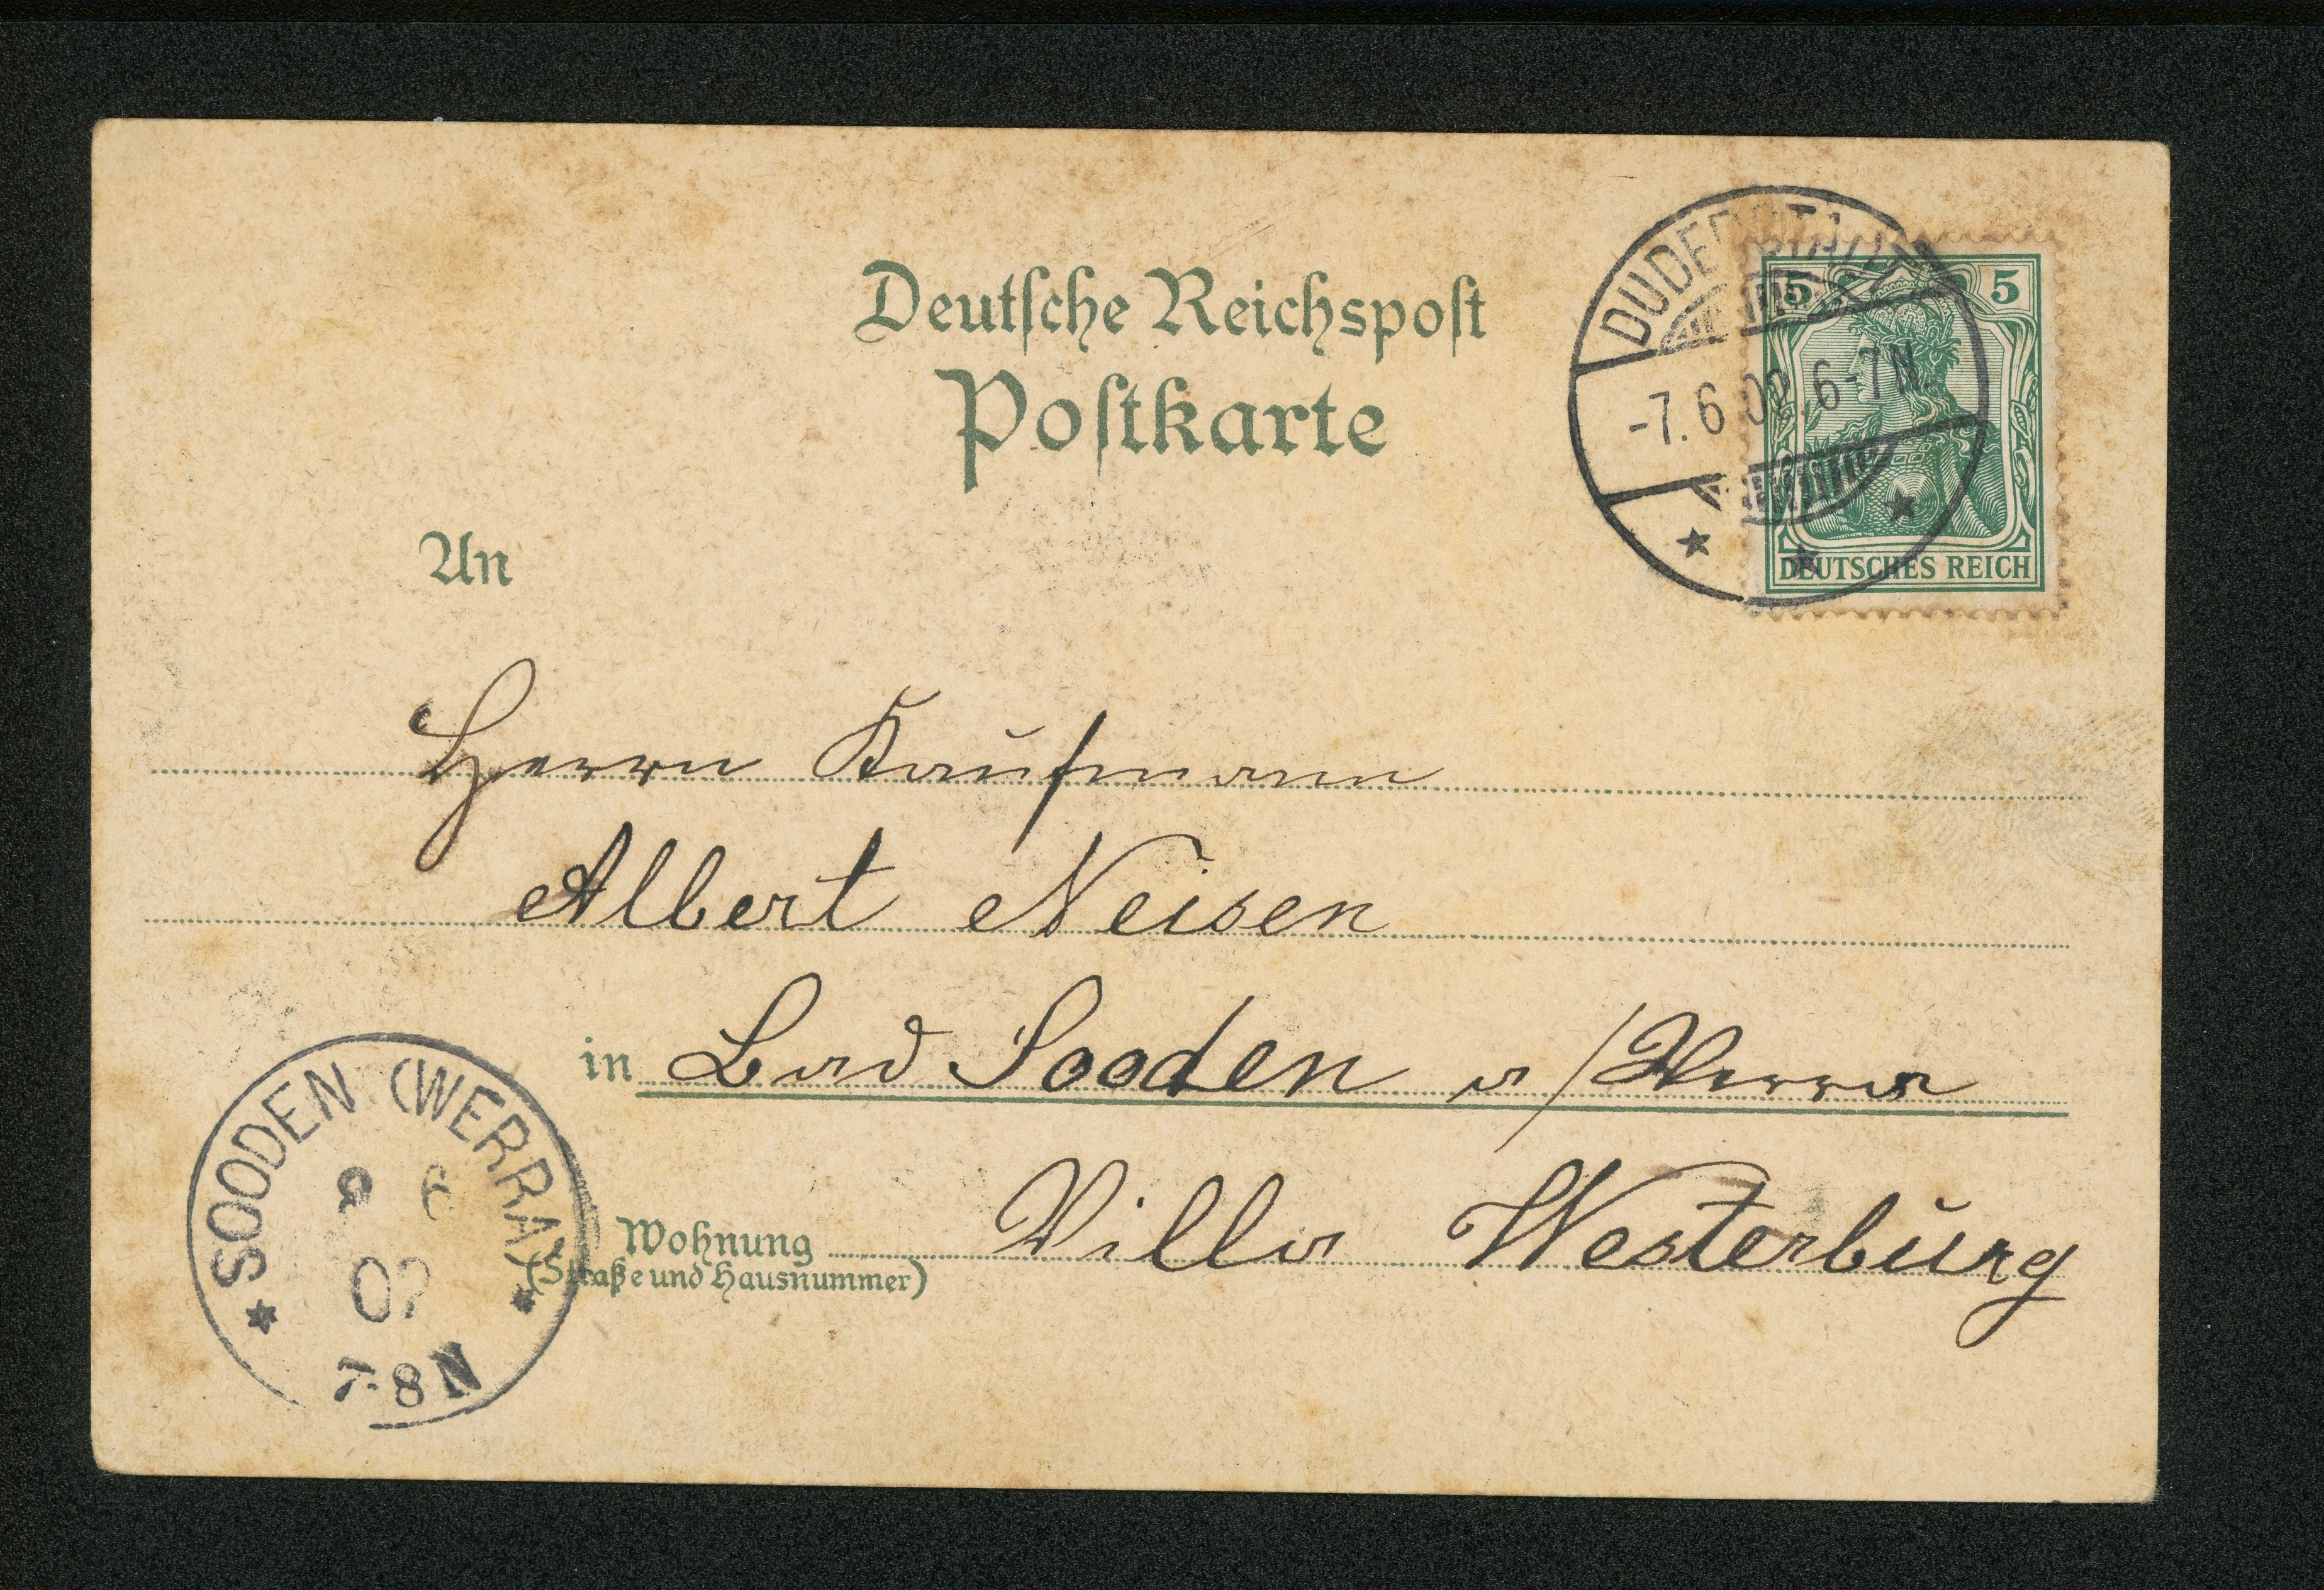 Deutsche Reichspost
Postkarte
DUDERSTADT
-7.6.02.6-7N.
5 5
DEUTSCHES REICH
An
Herrn Kaufmann
Albert Neisen
in Bad Sooden a/Werra
Wohnung Villa Westerburg
(Straße und Hausnummer)
SOODEN (WERRA)
6
02
7-8N